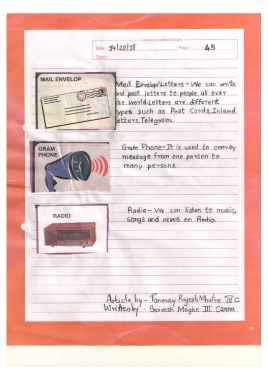 Date: 14/22/38 Page: 45
Topic:
MAIL ENVELOP
Mail Envelop/Letters - We can write
and post letters to people all over
the world. Letters are different
types such as Post Cards, Inland
letters, Telegram.
GRAM
PHONE
Gram Phone - It is used to convey
message from one person to
many persons.
RADIO
Radio - We can listen to music,
songs and news on Radio.
Article by - Tanmay Rajesh Mhatre III C
Written by - Sarvesh Moghe III Canna